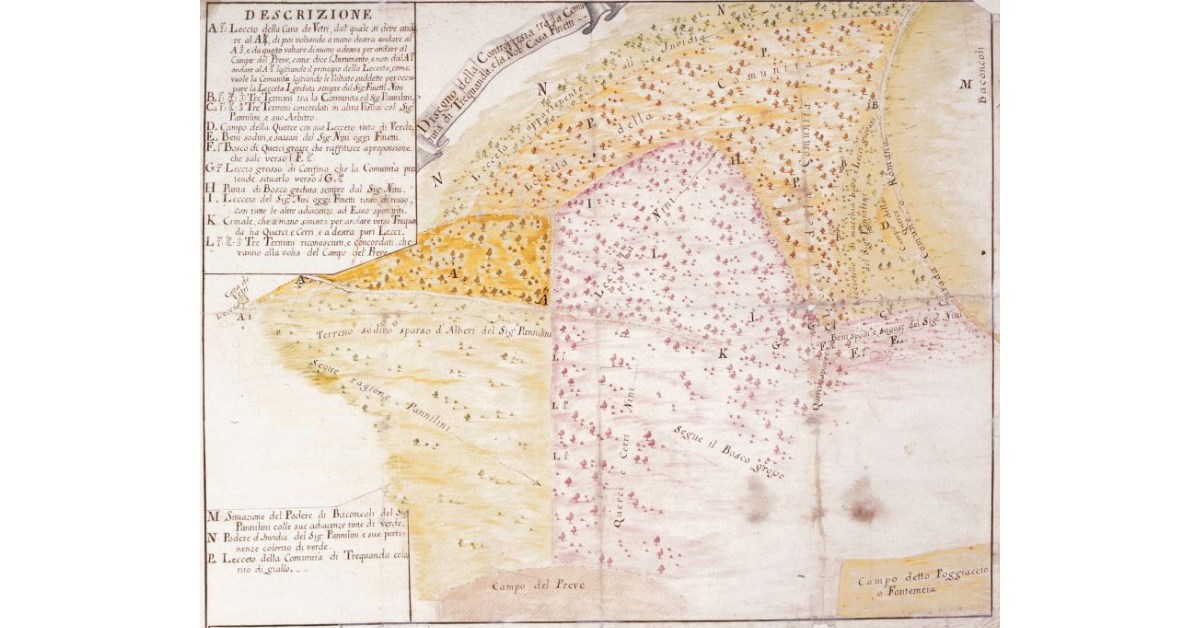 DESCRIZIONE
A. Leccio della Cava de Vetri, dal quale si deve anda
re al A 2º, di poi voltando a mano destra andare al
A 3, e da questo voltare di nuovo a destra per andare al
Campo del Preve, come dice l'Instrumento, e non dal A 1º
andare al A 3º lasciando il principio della Lecceta, come
vuole la Comunita lasciando le Voltate suddette per occu
pare la Lecceta goduta sempre dal Sig: Finetti Nini
B. 1º 2º 3º Tre Termini tra la Comunita, ed Sig: Pannilini.
C. 1º 2º 3º Tre Termini concordati in altra Visita col Sig:
Pannilini, e suo Arbitro.
D. Campo della Querce con suo Lecceto tinto di Verde.
E. Beni sodivi, e sassosi del Sig: Nini oggi Finetti.
F. 1º Bosco di Querci grosse che raffittisce a propersione
che sale verso l F. 2º
G. 1º Leccio grosso di Confino, che la Comunita pre
tende situarlo verso il G. 2º
H. Punta di Bosco goduta sempre dal Sig: Nini.
I. Lecceto del Sig: Nini oggi Finetti tinto di rosso,
con tutte le altre adiacenze ad Esso spettanti.
K. Crinale, che a mano sinistra per andare verso Trequa
da ha Querci e Cerri, e a destra puri Lecci.
L. 1º 2º 3º Tre Termini riconosciuti, e concordati, che
vanno alla volta del Campo del Preve.
Disegno della Controversia tra la Comu
nità di Trequanda, e la Nob: Casa Finetti
N
N
N
Lecceta appartenente all Invidia
P.
P.
P.
Lecceta della Comunita
della Comunita
M
Baconcoli
B
B
Strada Comune Romana
Leccetello di macchia bassa
del Sig: Pannilini
Campo della Querce
D
H
I
I.
I.
Lecceta Nini
A
A
A
Cava de
Vetri
Leccio
A. 1
Terreno sodivo sparso d'Alberi del Sig: Pannilini
Segue ragione Pannilini
G 2º
C
C
Beni spolti e sassosi del Sig: Nini
F.
F.
E.
G
K
L
L
L
Querci e Cerri Nini
Segue il Bosco grosso
Campo del Preve
Campo detto Poggiaccio
o Fontemeta
M Situazione del Podere di Baconcoli del Sig:
Pannilini colle sue adiacenze tinte di verde.
N Podere d'Invidia del Sig: Pannilini, e sue perti
nenze colorito di verde.
P. Lecceto della Comunita di Trequanda colo
rito di giallo.